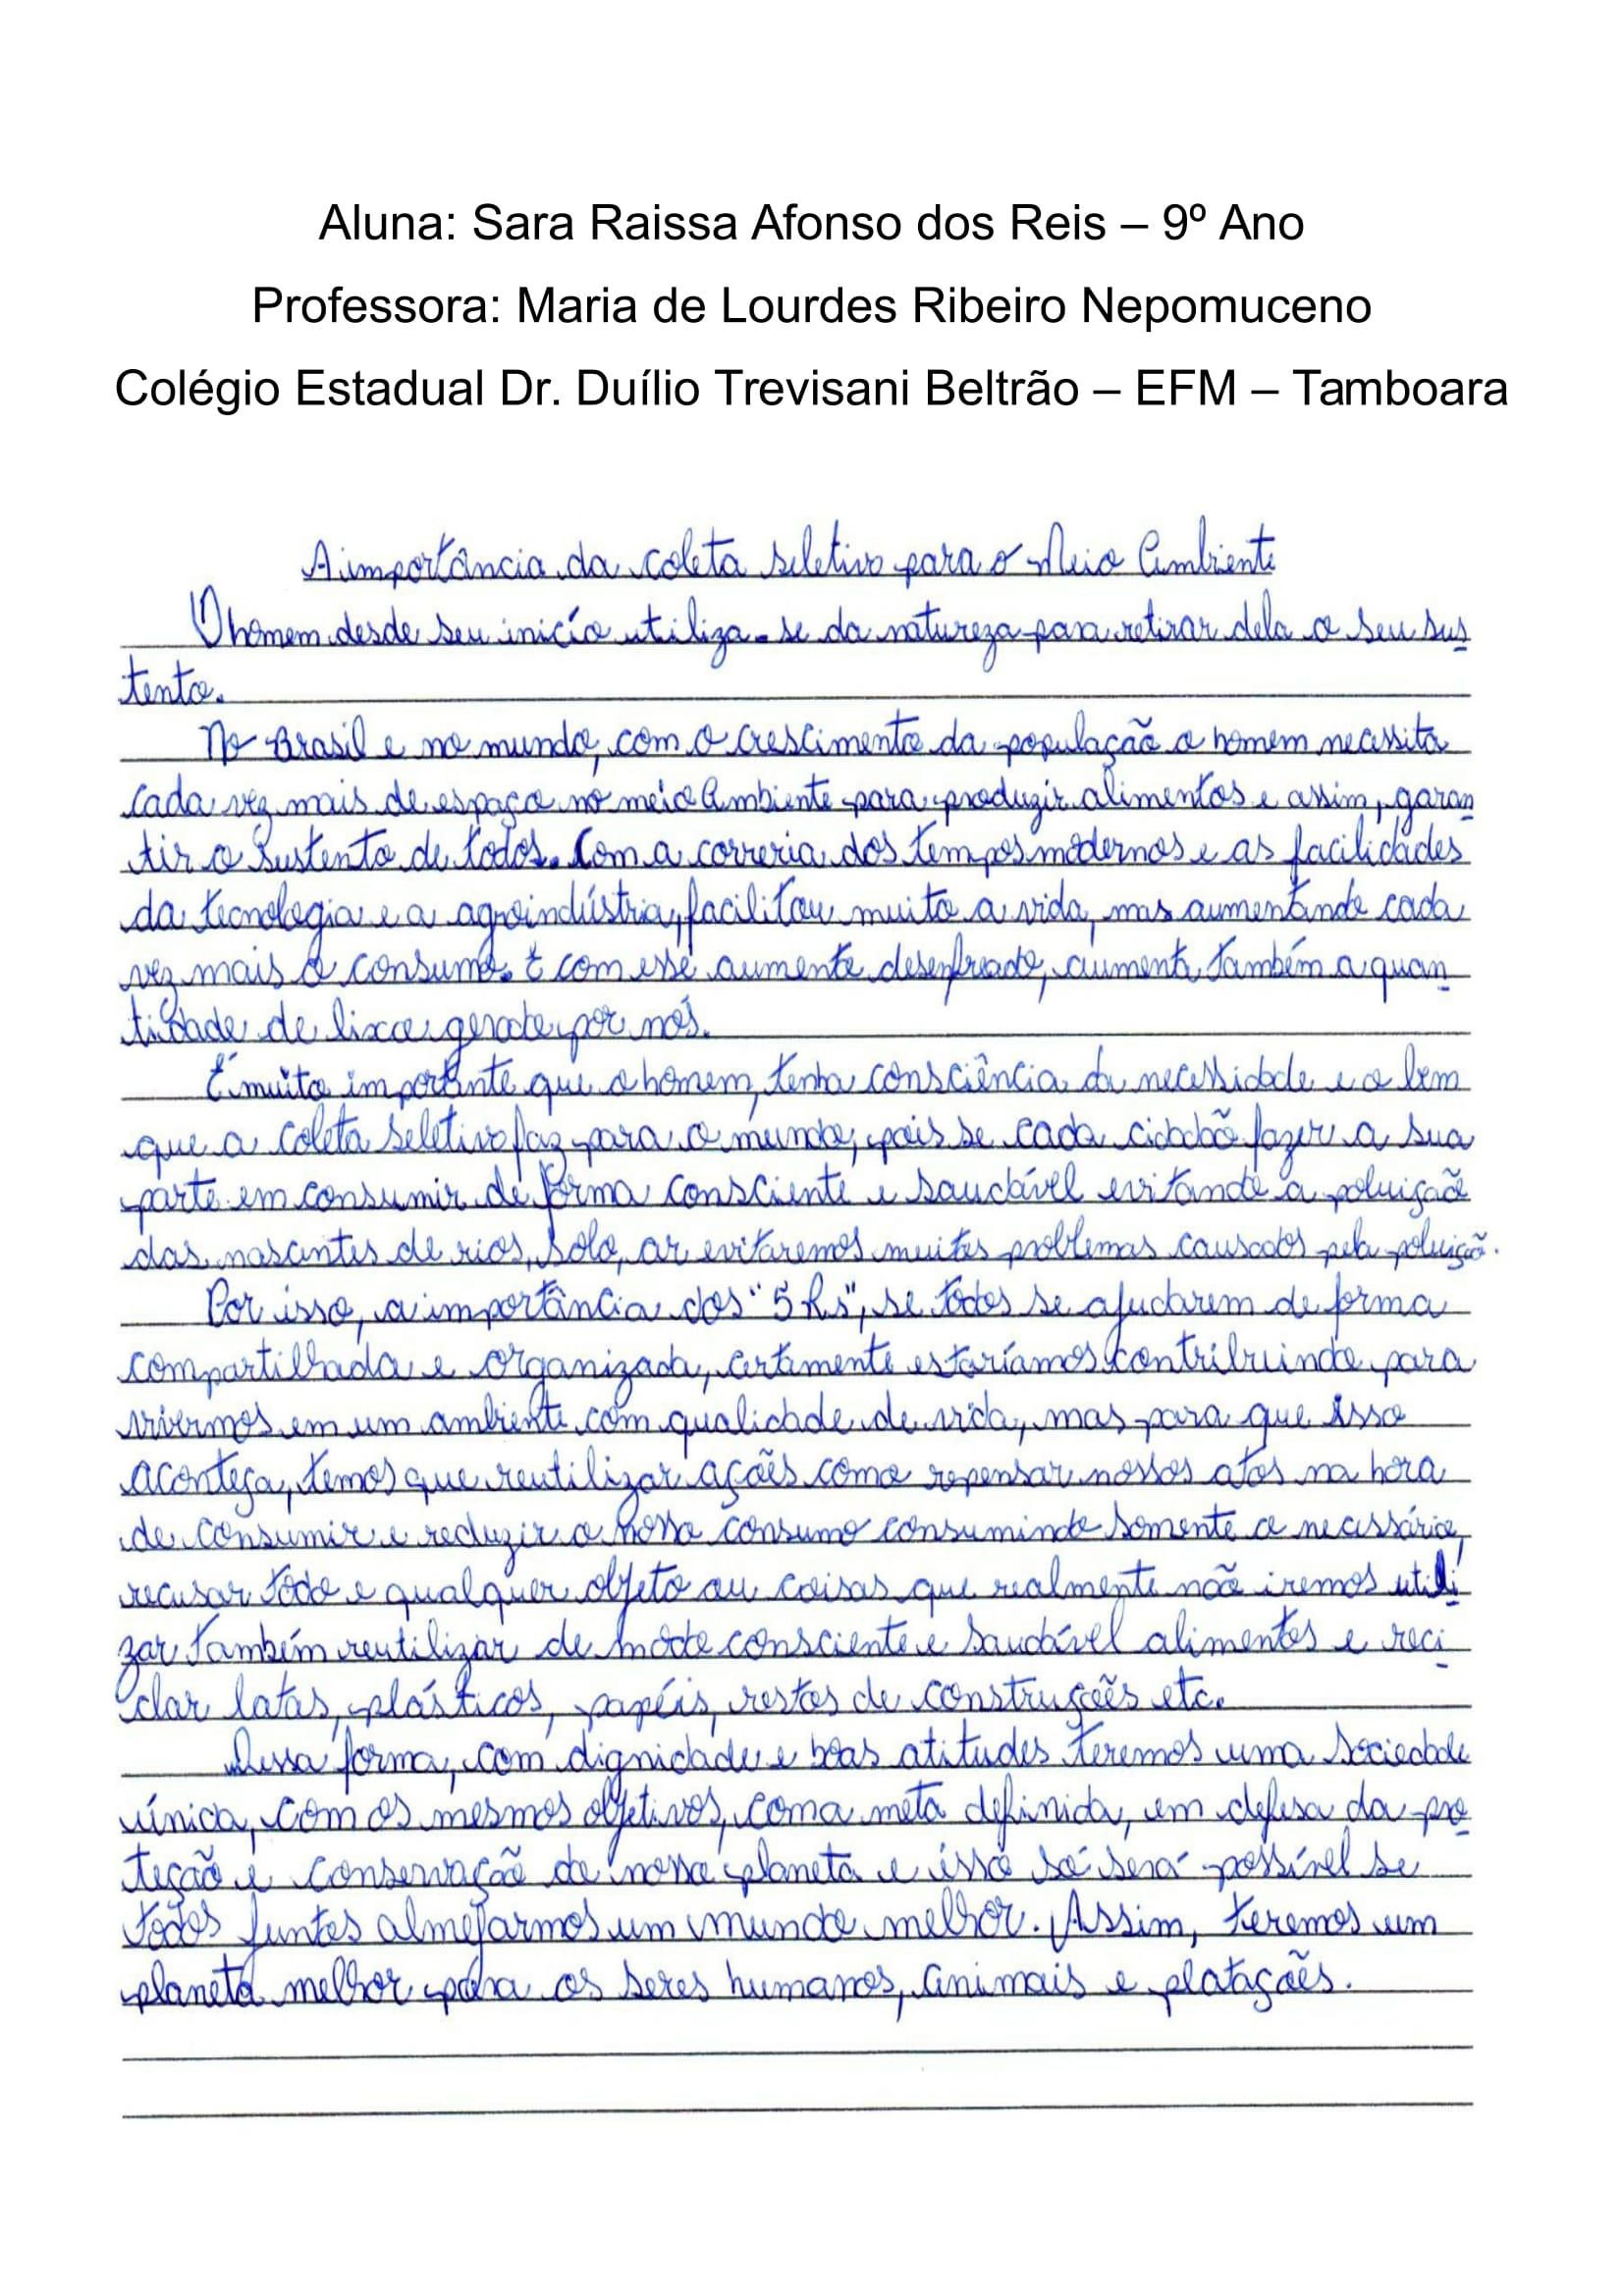 Aluna: Sara Raissa Afonso dos Reis – 9º Ano
Professora: Maria de Lourdes Ribeiro Nepomuceno
Colégio Estadual Dr. Duílio Trevisani Beltrão – EFM – Tamboara
A importância da coleta seletiva para o Meio Ambiente
O homem desde seu inicío utiliza-se da natureza para retirar dela o seu sus
tento.
No Brasil e no mundo, com o crescimento da população o homem necessita
cada vez mais de espaço no meio Ambiente para produzir alimentos e assim, garan
tir o sustento de todos. Com a correria dos tempos modernos e as facilidades
da tecnologia e a agroindústria, facilitou muito a vida, mas aumentando cada
vez mais o consumo. E com esse aumento desenfreado, aumenta também a quan
tidade de lixo gerado por nós.
É muito importante que o homem, tenha consciência da necessidade e o bem
que a coleta seletiva faz para o mundo, pois se cada cidadão fazer a sua
parte em consumir de forma consciente e saudável evitando a poluição
das nascentes de rios, solo, ar evitaremos muitos problemas causados pela poluição.
Por isso, a importância dos "5 Rs", se todos se ajudarem de forma
compartilhada e organizada, certamente estaríamos contribuindo para
vivermos em um ambiente com qualidade de vida, mas para que isso
aconteça, temos que reutilizar ações como repensar nossos atos na hora
de consumir e reduzir o nosso consumo consumindo somente o necessário,
recusar todo e qualquer objeto ou coisas que realmente não iremos utili
zar também reutilizar de modo consciente e saudável alimentos e reci
clar latas, plásticos, papéis, restos de construções etc.
Dessa forma, com dignidade e boas atitudes teremos uma sociedade
única, com os mesmos objetivos, com a meta definida, em defesa da pro
teção e conservação do nosso planeta e isso só será possível se
todos juntos almejarmos um mundo melhor. Assim, teremos um
planeta melhor para os seres humanos, animais e platações.